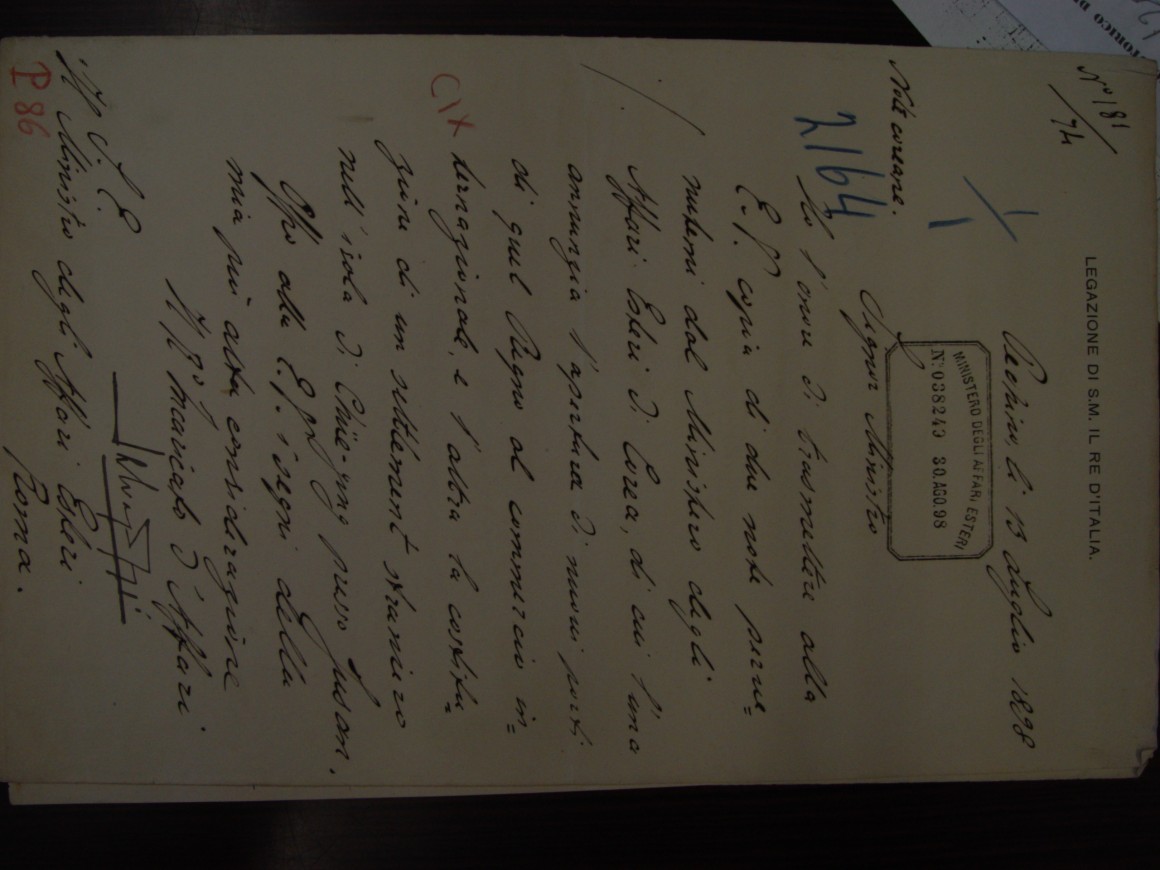 LEGAZIONE DI S.M. IL RE D'ITALIA.
N° 181
/74
Pechino, li 13 Luglio 1898
MINISTERO DEGLI AFFARI ESTERI
N: 038249 30.AGO.98
Note coreane.
2164
Signor Ministro
Ho l'onore di trasmettere alla
E.V. copia di due note perve=
nutemi dal Ministero degli
Affari Esteri di Corea, di cui l'una
annunzia l'apertura di nuovi porti
di quel Regno al commercio in=
ternazionale, e l'altra la costitu=
zione di un settlement straniero
nell'isola di Chüe-yng presso Fusan.
Offro alla E.V. i segni della
mia più alta considerazione
Il R° Incaricato d'Affari
A S. E.
Il Ministro degli Affari Esteri
Roma.
P 86